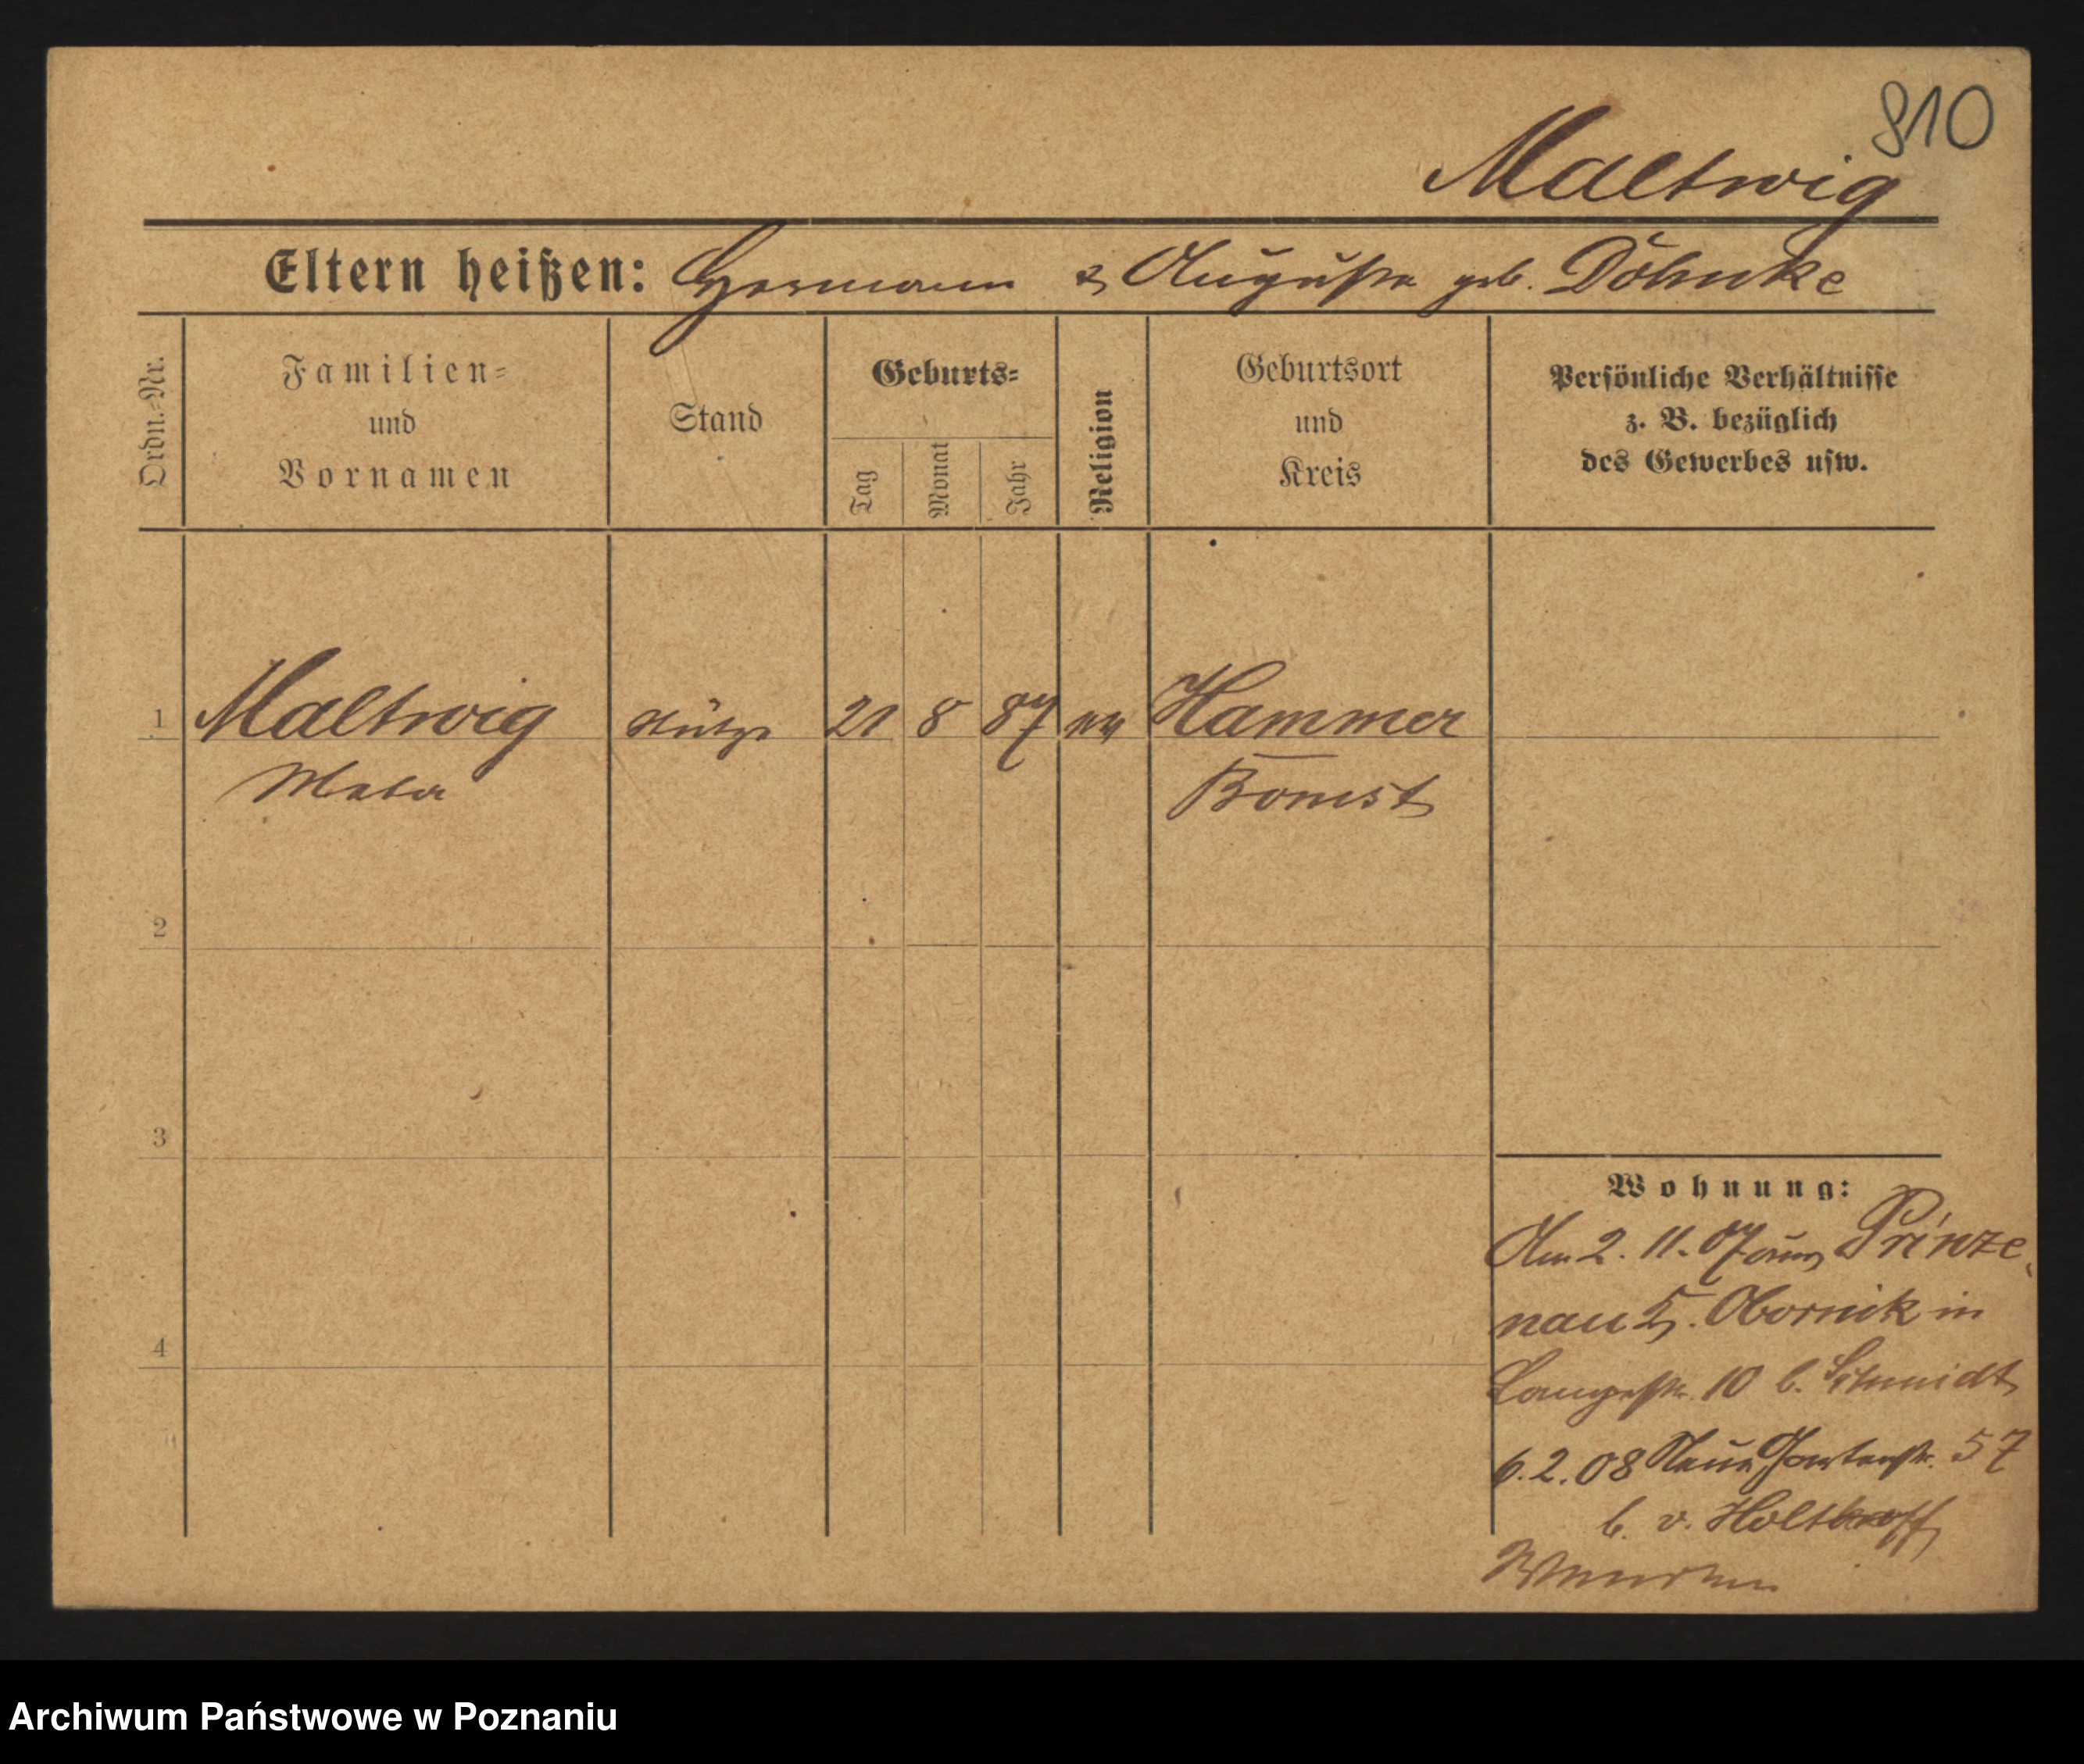 810
Maltwig
Eltern heißen: Hermann & Auguste geb. Döhnke
Ordn.-Nr.
Familien-
und
Vornamen
Stand
Geburts-
Tag
Monat
Jahr
Religion
Geburtsort
und
Kreis
Persönliche Verhältnisse
z. B. bezüglich
des Gewerbes usw.
1 Maltwig Stütze 21 8 87 Hammer
Bomst
2
3
4
Wohnung:
Am 2. 11. 07 aus Prinze
nau K. Obornik in
Langestr. 10 b. Schmidt
6. 2. 08 Neue Gartenstr. 57
b. v. Holthoff
Archiwum Państwowe w Poznaniu